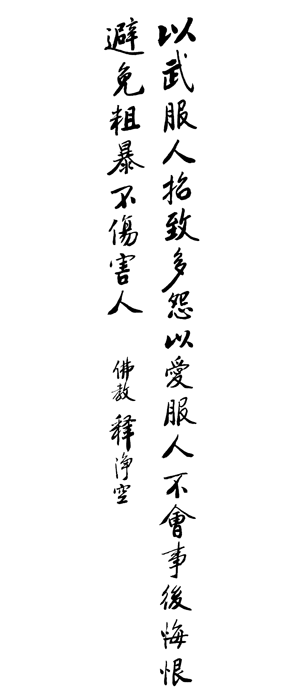 以武服人招致多怨以愛服人不會事後悔恨
避免粗暴不傷害人
佛教 釋淨空